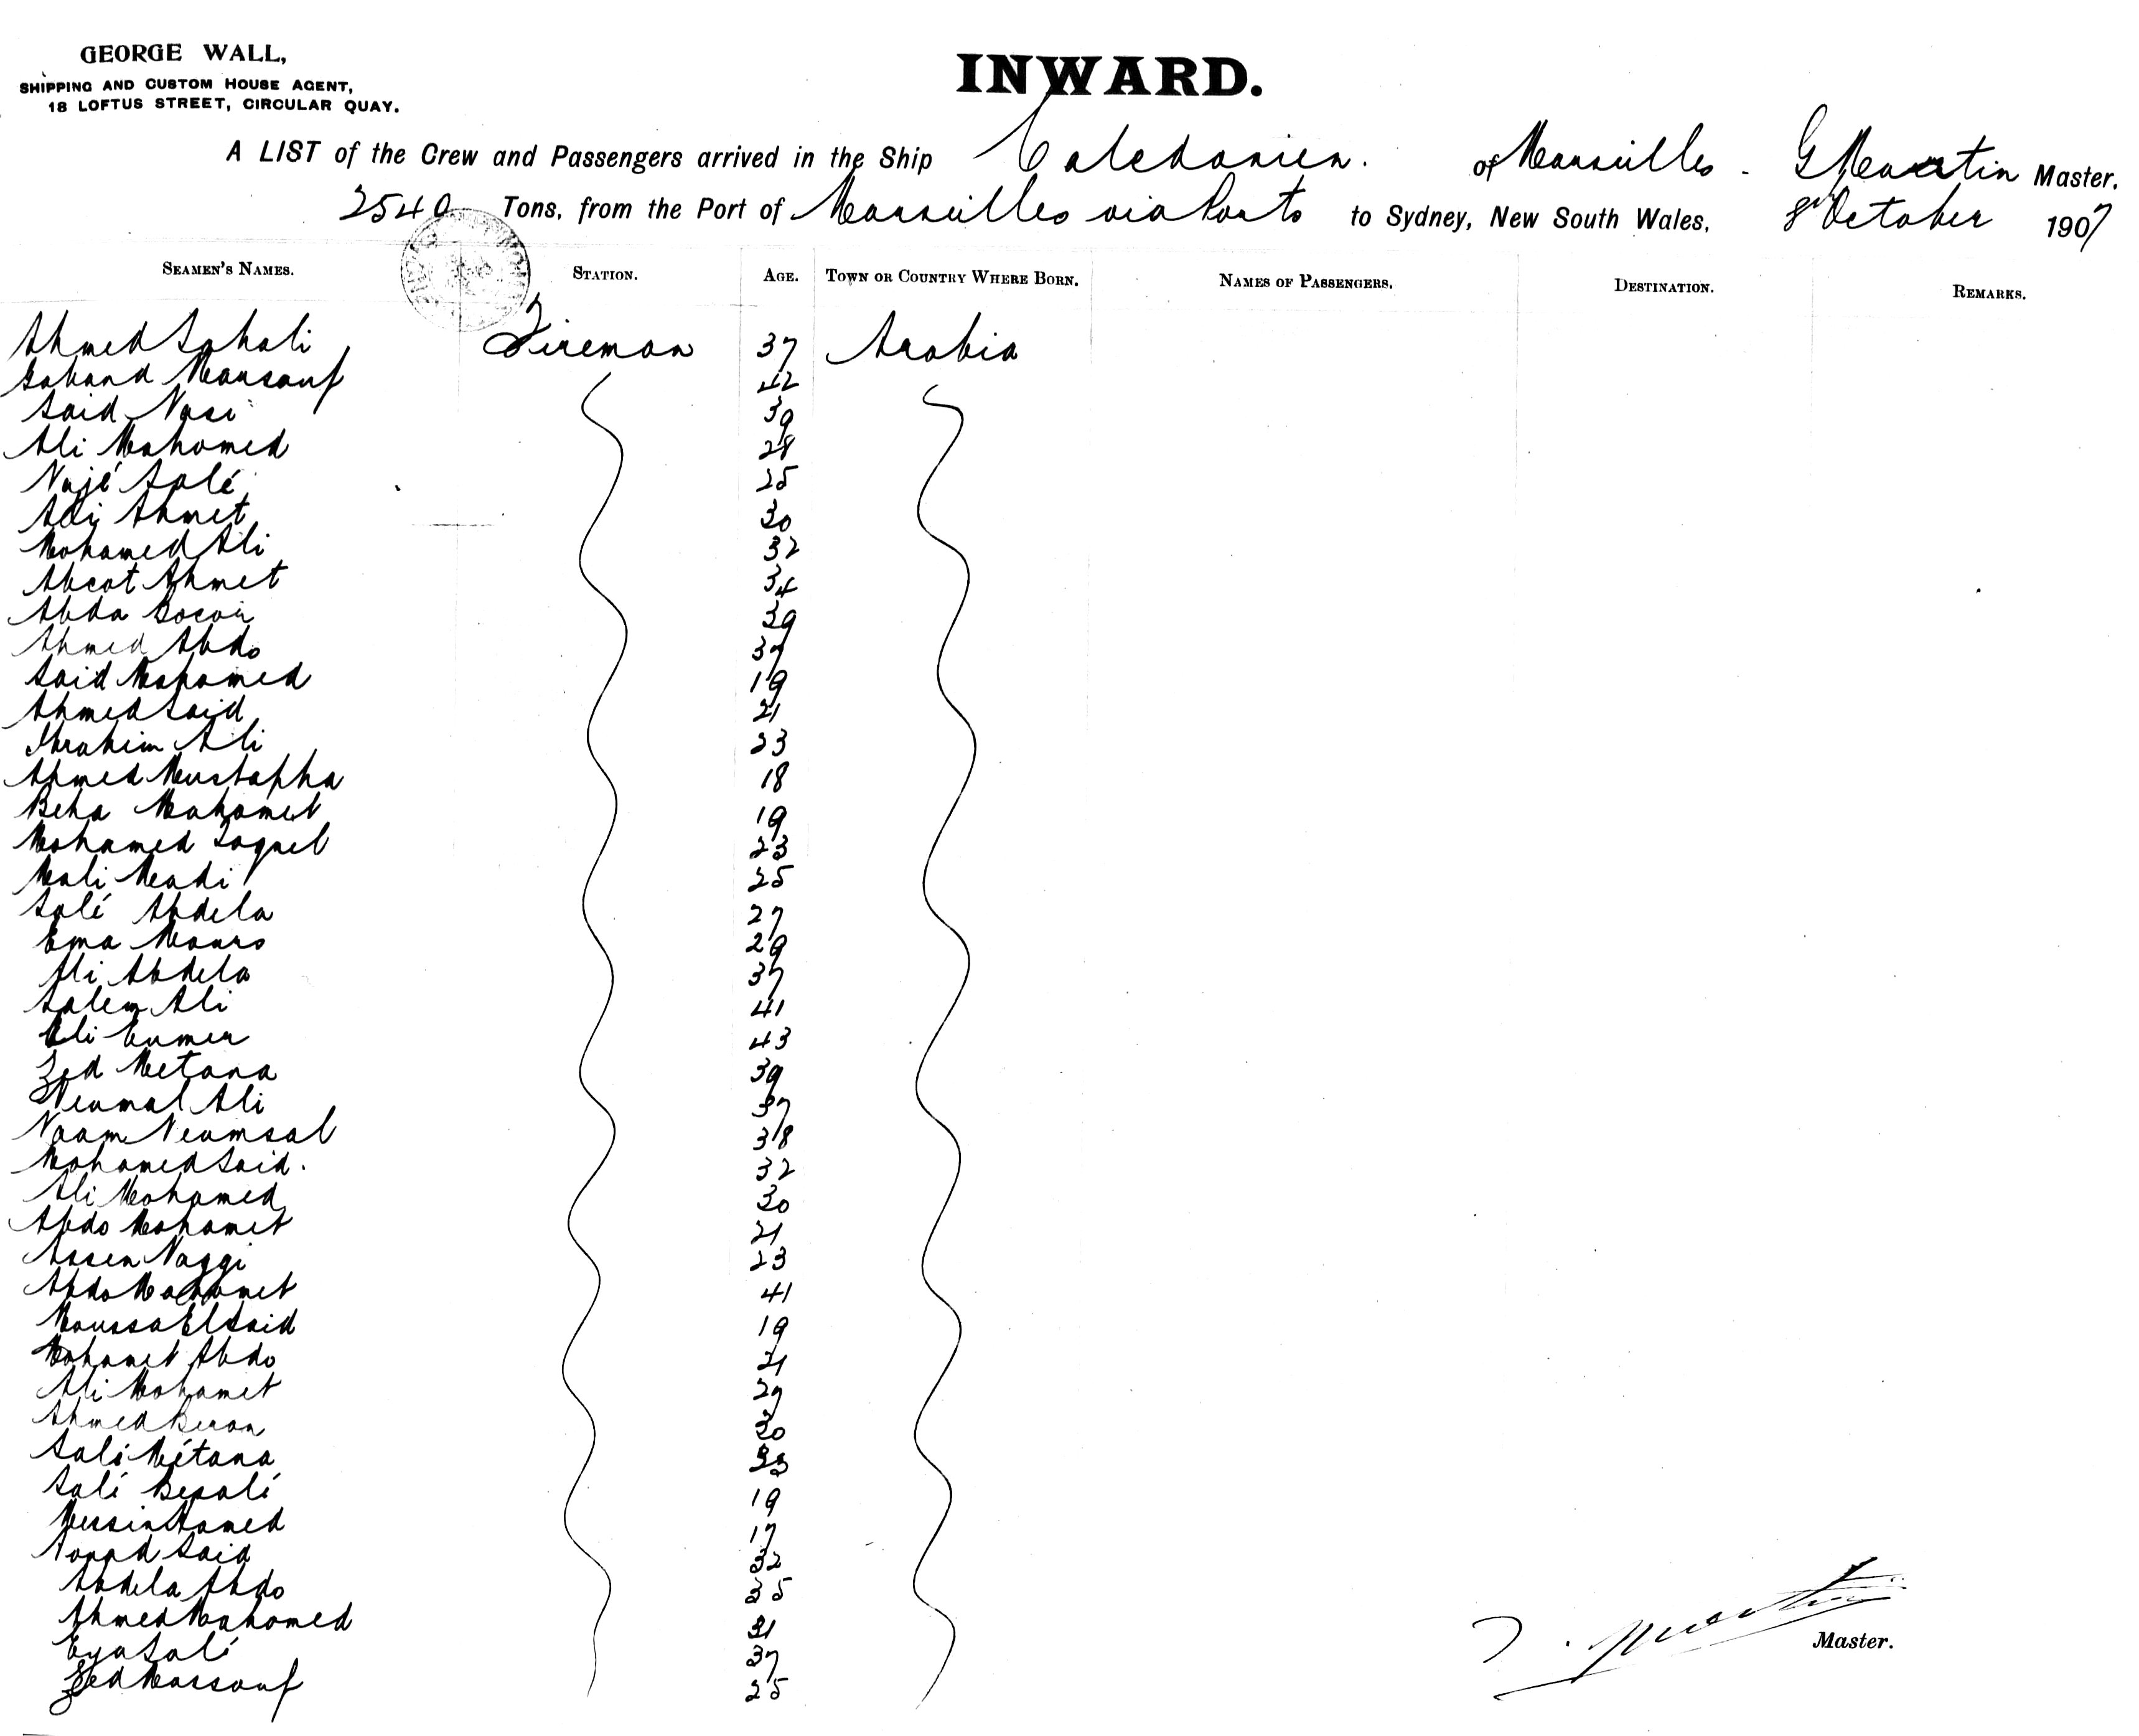 GEORGE WALL,
SHIPPING AND CUSTOM HOUSE AGENT,
18 LOFTUS STREET, CIRCULAR QUAY.
INWARD.
A LIST of the Crew and Passengers arrived in the Ship Caledonien. of Marseilles - G Martin Master,
2540 Tons, from the Port of Marseilles via Ports to Sydney, New South Wales, 8th October 1907
SEAMEN'S NAMES. STATION. AGE. TOWN OR COUNTRY WHERE BORN. NAMES OF PASSENGERS. DESTINATION. REMARKS.
Ahmed Sahali Fireman 37 Arabia
Mansouf 42
Said Nasi 39
Ali Mahomed 28
Najé Salé 25
Ali Ahmet 30
Mohamed Ali 32
Abcot Ahmet 34
Abda 39
Ahmed Abdo 37
Said Mahomed 19
Ahmed Said 21
Ibrahim Ali 23
Ahmed Mustapha 18
Beha Mahomet 19
Mohamed Saguel 23
Mali Madi 25
Salé Abdela 27
Ema Mours 29
Ali Abdela 37
Salem Ali 41
Ali Eumer 43
Zed Metana 39
Neumal Ali 37
Naam Neumsal 38
Mohamed Said. 32
Ali Mohamed 30
Abdo Mahomet 21
Assen Naggi 23
Abdo Mahomet 41
Moussa El Said 19
Mahomet Abdo 21
Ali Mohamet 27
Ahmed 30
Sali Métana 33
Salé Besalé 19
Messin Hamed 17
Said 32
Abdela Abdo 35
Ahmed Mahomed 31
Eya Salé 37
Zed Massouf 25
Martin
Master.